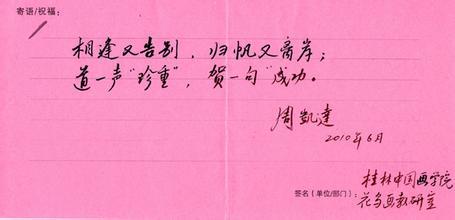 寄语/祝福：
相逢又告别，归帆又离岸；
道一声“珍重”，贺一句“成功。
周凯达
2010年6月
签名（单位/部门）：桂林中国画学院
花鸟画教研室